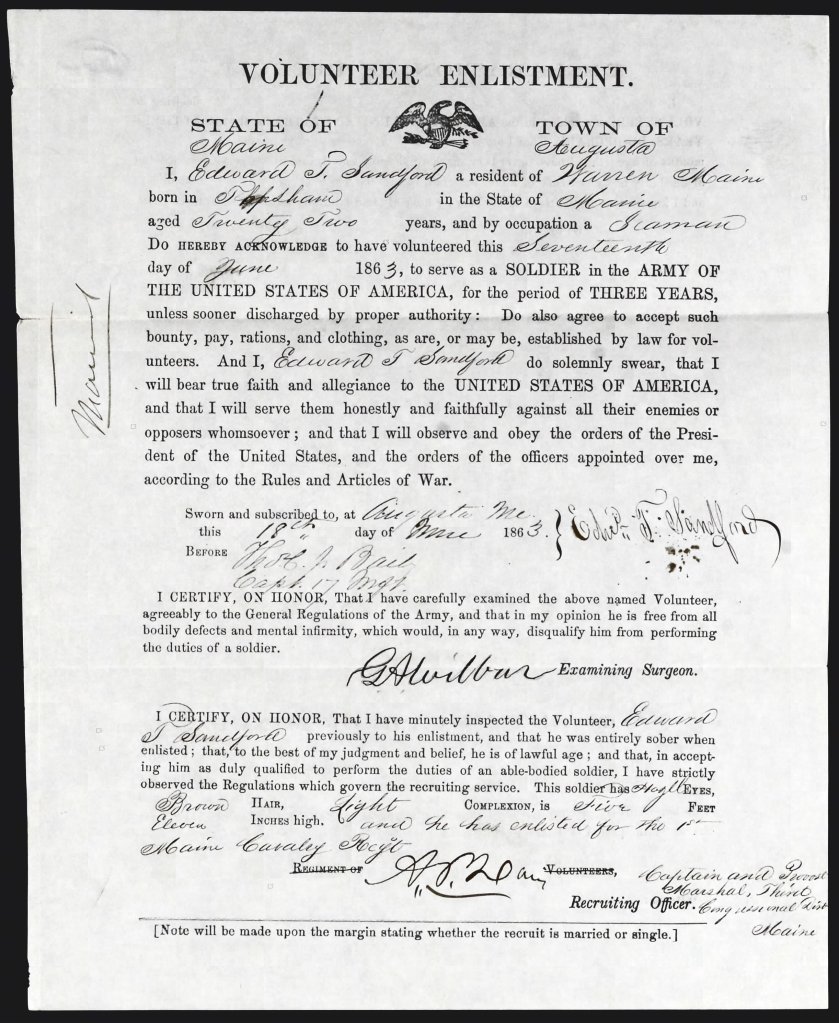 VOLUNTEER ENLISTMENT.
STATE OF TOWN OF
Maine Augusta
I, Edward T. Sandford a resident of Warren Maine
born in Topsham in the State of Maine
aged Twenty Two years, and by occupation a Seaman
Do HEREBY ACKNOWLEDGE to have volunteered this Seventeenth
day of June 1863, to serve as a SOLDIER in the ARMY OF
THE UNITED STATES OF AMERICA, for the period of THREE YEARS,
unless sooner discharged by proper authority: Do also agree to accept such
bounty, pay, rations, and clothing, as are, or may be, established by law for vol-
unteers. And I, Edward T Sandford do solemnly swear, that I
will bear true faith and allegiance to the UNITED STATES OF AMERICA,
and that I will serve them honestly and faithfully against all their enemies or
opposers whomsoever; and that I will observe and obey the orders of the Presi-
dent of the United States, and the orders of the officers appointed over me,
according to the Rules and Articles of War.
Sworn and subscribed to, at Augusta Me.
this 18th day of 1863. Edwd T. Sandford
BEFORE
Capt. 17
I CERTIFY, ON HONOR, That I have carefully examined the above named Volunteer,
agreeably to the General Regulations of the Army, and that in my opinion he is free from all
bodily defects and mental infirmity, which would, in any way, disqualify him from performing
the duties of a soldier.
G A Wilbur Examining Surgeon.
I CERTIFY, ON HONOR, That I have minutely inspected the Volunteer, Edward
T Sandford previously to his enlistment, and that he was entirely sober when
enlisted; that, to the best of my judgment and belief, he is of lawful age; and that, in accept-
ing him as duly qualified to perform the duties of an able-bodied soldier, I have strictly
observed the Regulations which govern the recruiting service. This soldier has EYES,
Brown HAIR, Light COMPLEXION, is Five FEET
Eleven INCHES high. and he has enlisted for the 1st
Maine Cavalry Regt
REGIMENT OF VOLUNTEERS,
Captain and Provost
Marshal, Third
Recruiting Officer. Congressional Dist
Maine
[Note will be made upon the margin stating whether the recruit is married or single.]